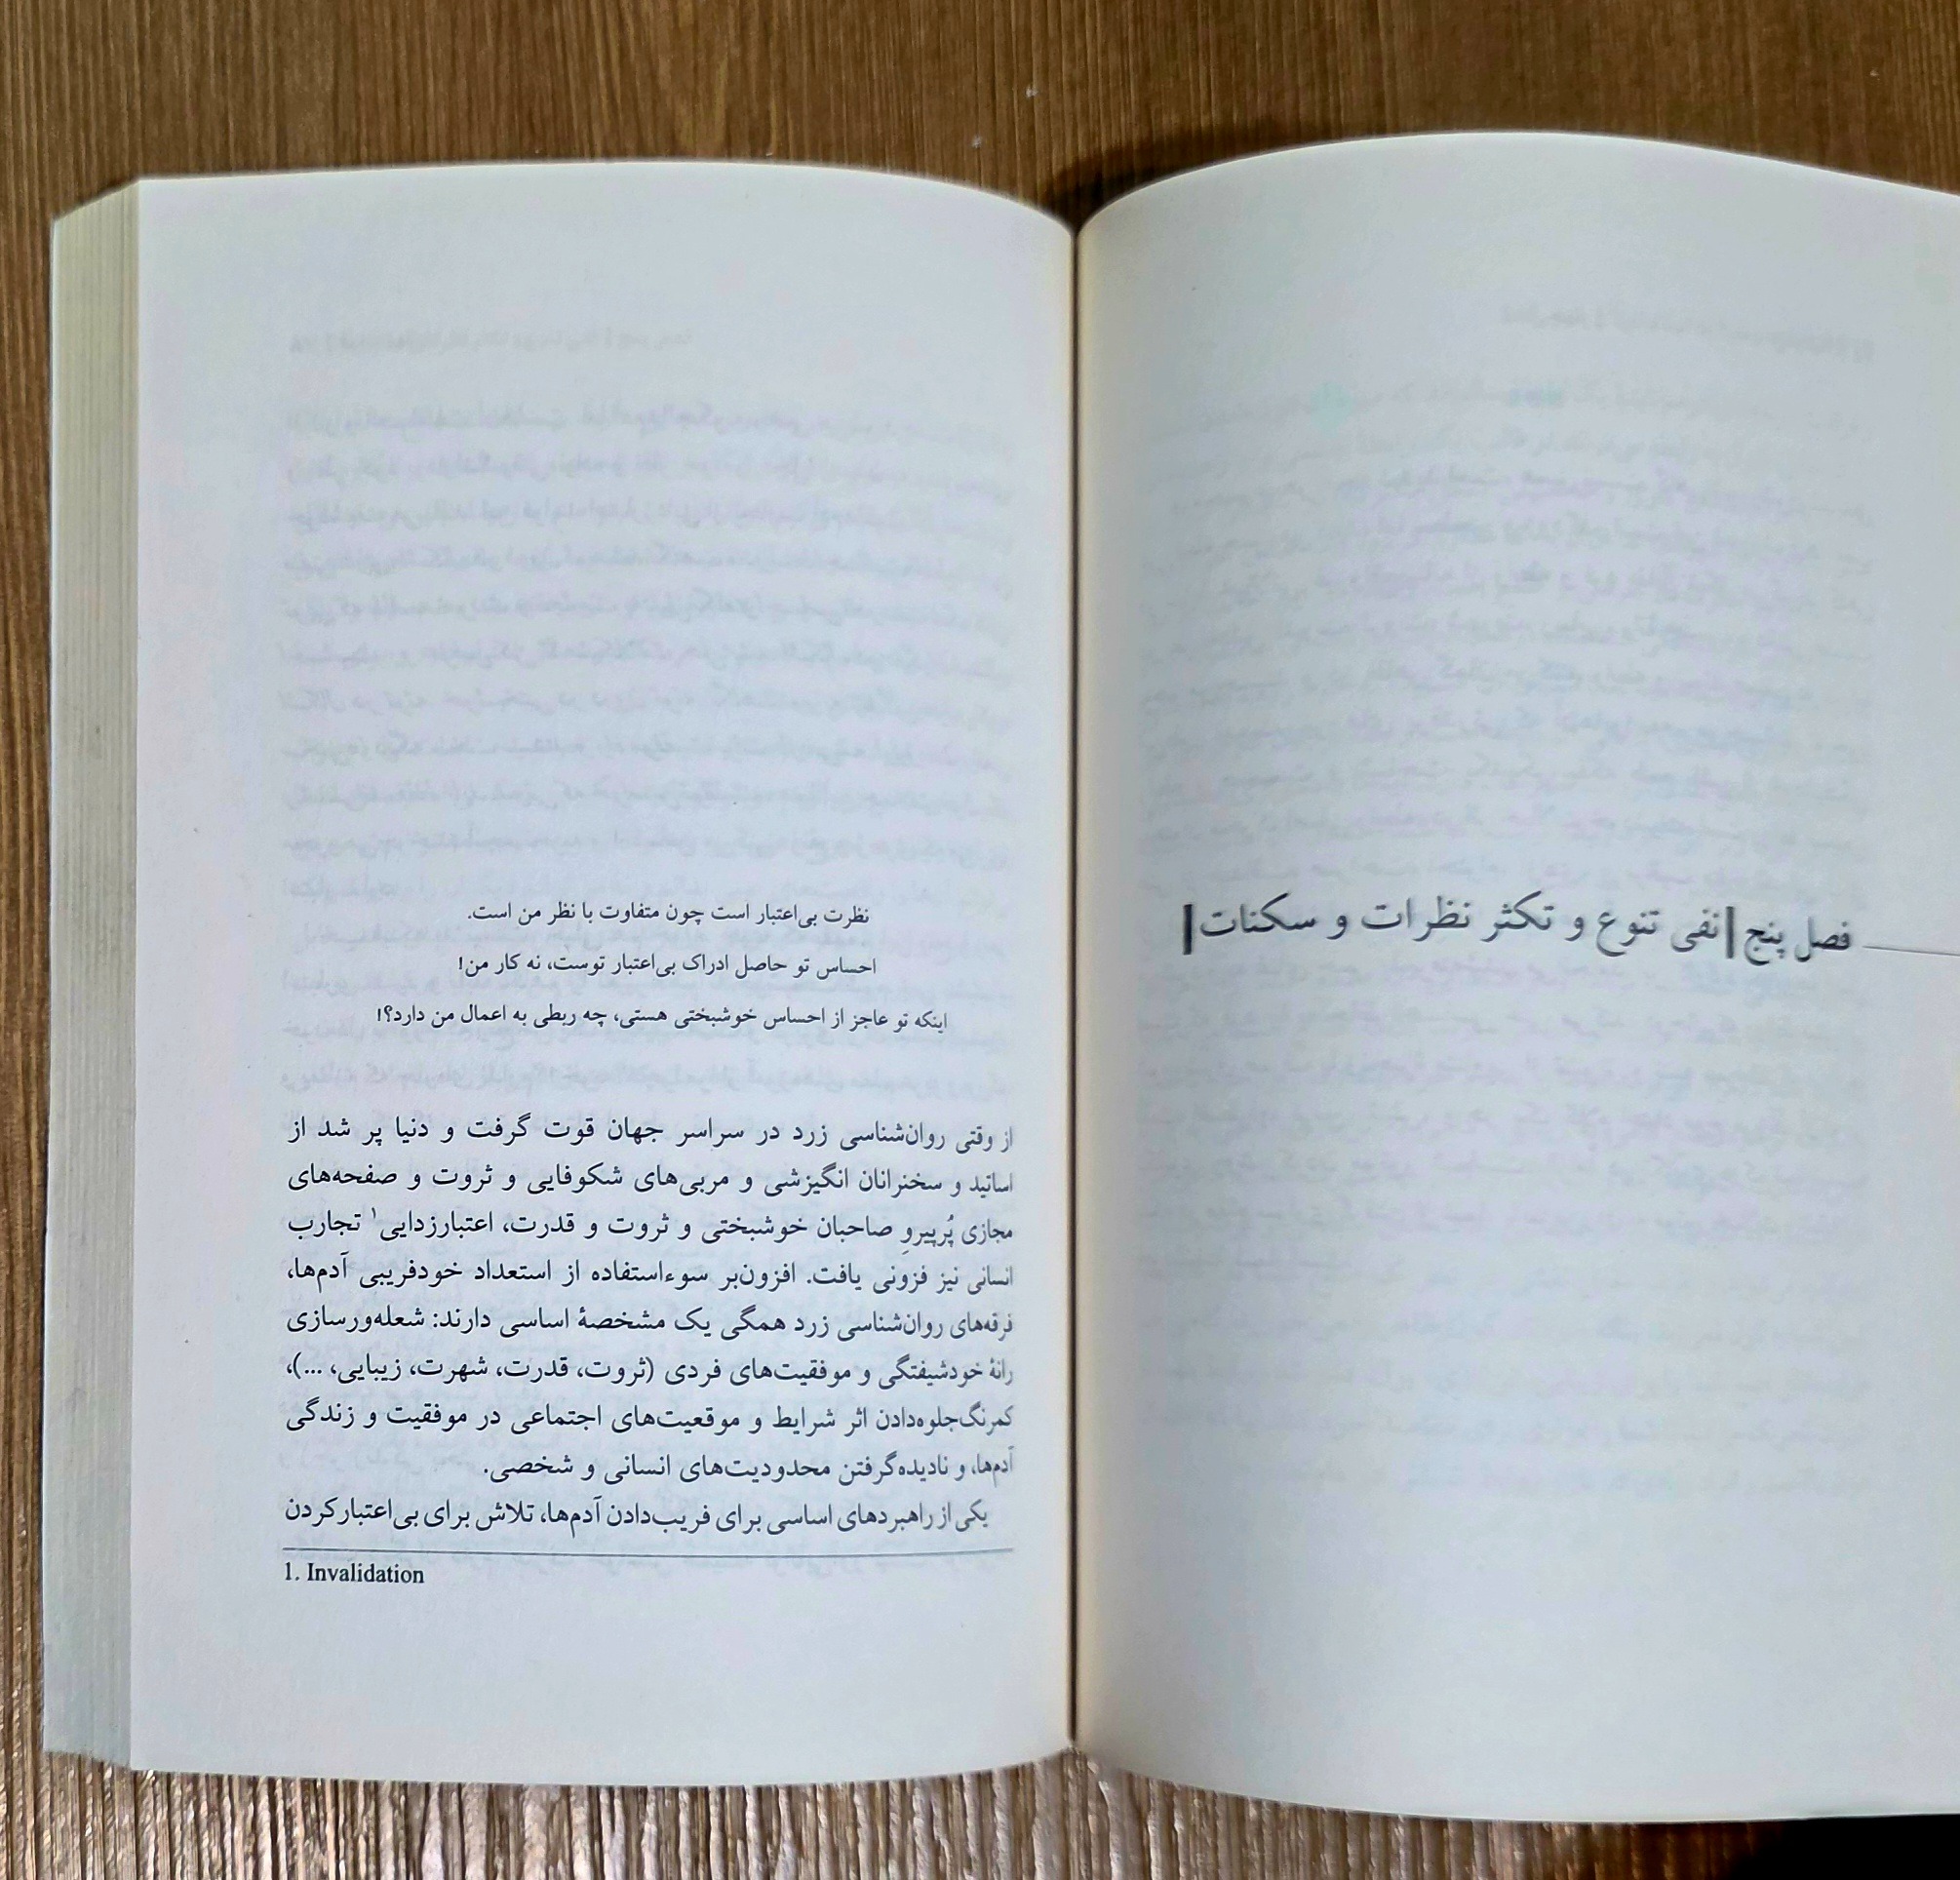 فصل پنج | نفی تنوع و تکثر نظرات و سکنات |
نظرت بی‌اعتبار است چون متفاوت با نظر من است.
احساس تو حاصل ادراک بی‌اعتبار توست، نه کار من!
اینکه تو عاجز از احساس خوشبختی هستی، چه ربطی به اعمال من دارد؟!
از وقتی روان‌شناسی زرد در سراسر جهان قوت گرفت و دنیا پر شد از
اساتید و سخنرانان انگیزشی و مربی‌های شکوفایی و ثروت و صفحه‌های
مجازی پُرپیروِ صاحبان خوشبختی و ثروت و قدرت، اعتبارزدایی۱ تجارب
انسانی نیز فزونی یافت. افزون‌بر سوءاستفاده از استعداد خودفریبی آدم‌ها،
فرقه‌های روان‌شناسی زرد همگی یک مشخصهٔ اساسی دارند: شعله‌ورسازی
رانهٔ خودشیفتگی و موفقیت‌های فردی (ثروت، قدرت، شهرت، زیبایی، ...)،
کمرنگ‌جلوه‌دادن اثر شرایط و موقعیت‌های اجتماعی در موفقیت و زندگی
آدم‌ها، و نادیده‌گرفتن محدودیت‌های انسانی و شخصی.
یکی از راهبردهای اساسی برای فریب‌دادن آدم‌ها، تلاش برای بی‌اعتبارکردن
1. Invalidation